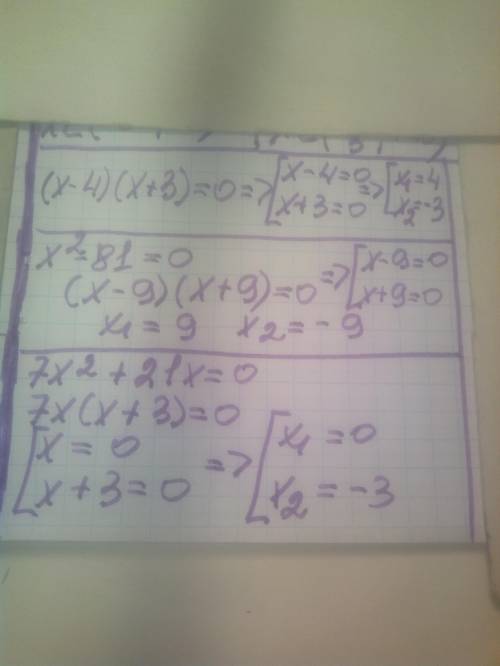 (x-4)(x+3)=0=>[x-4=0 => [x₁=4
x+3=0 x₂=-3
x²-81=0
(x-9)(x+9)=0 => [x-9=0
x+9=0
x₁=9 x₂=-9
7x²+21x=0
7x(x+3)=0
[x=0 => [x₁=0
x+3=0 x₂=-3